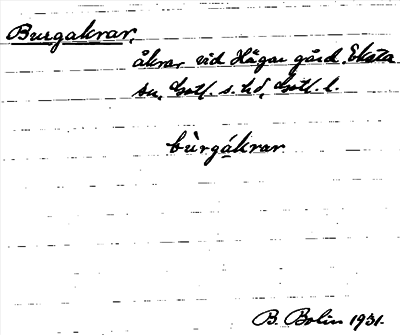 Burgakrar,
åkrar vid Hägur gård, Eksta
sn, Gotl. s. hd, Gotl. l.
bùrgákrar
B. Bolin 1931.